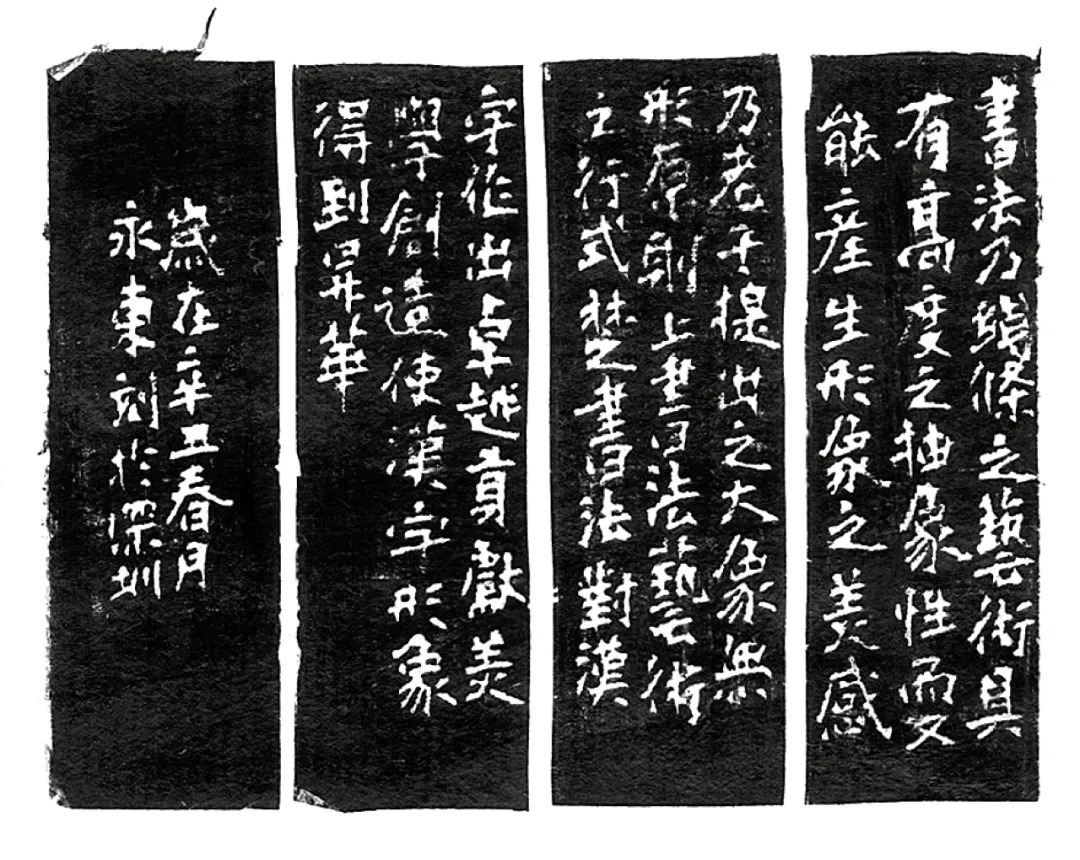 書法乃綫條之藝術具
有高度之抽象性而又
能産生形象之美感
乃老子提出之大象無
形原則上書法藝術
之行式書法對漢
字作出卓越貢獻美
學創造使漢字形象
得到昇華
歲在辛丑春月
永東刻於深圳